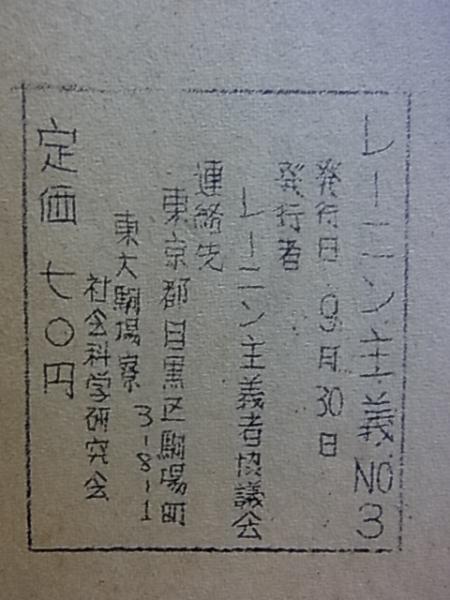 レーニン主義 NO 3
発行日 9月30日
発行者
レーニン主義者協議会
連絡先
東京都目黒区駒場町
3-8-1
東大駒場寮
社会科学研究会
定価 七〇円